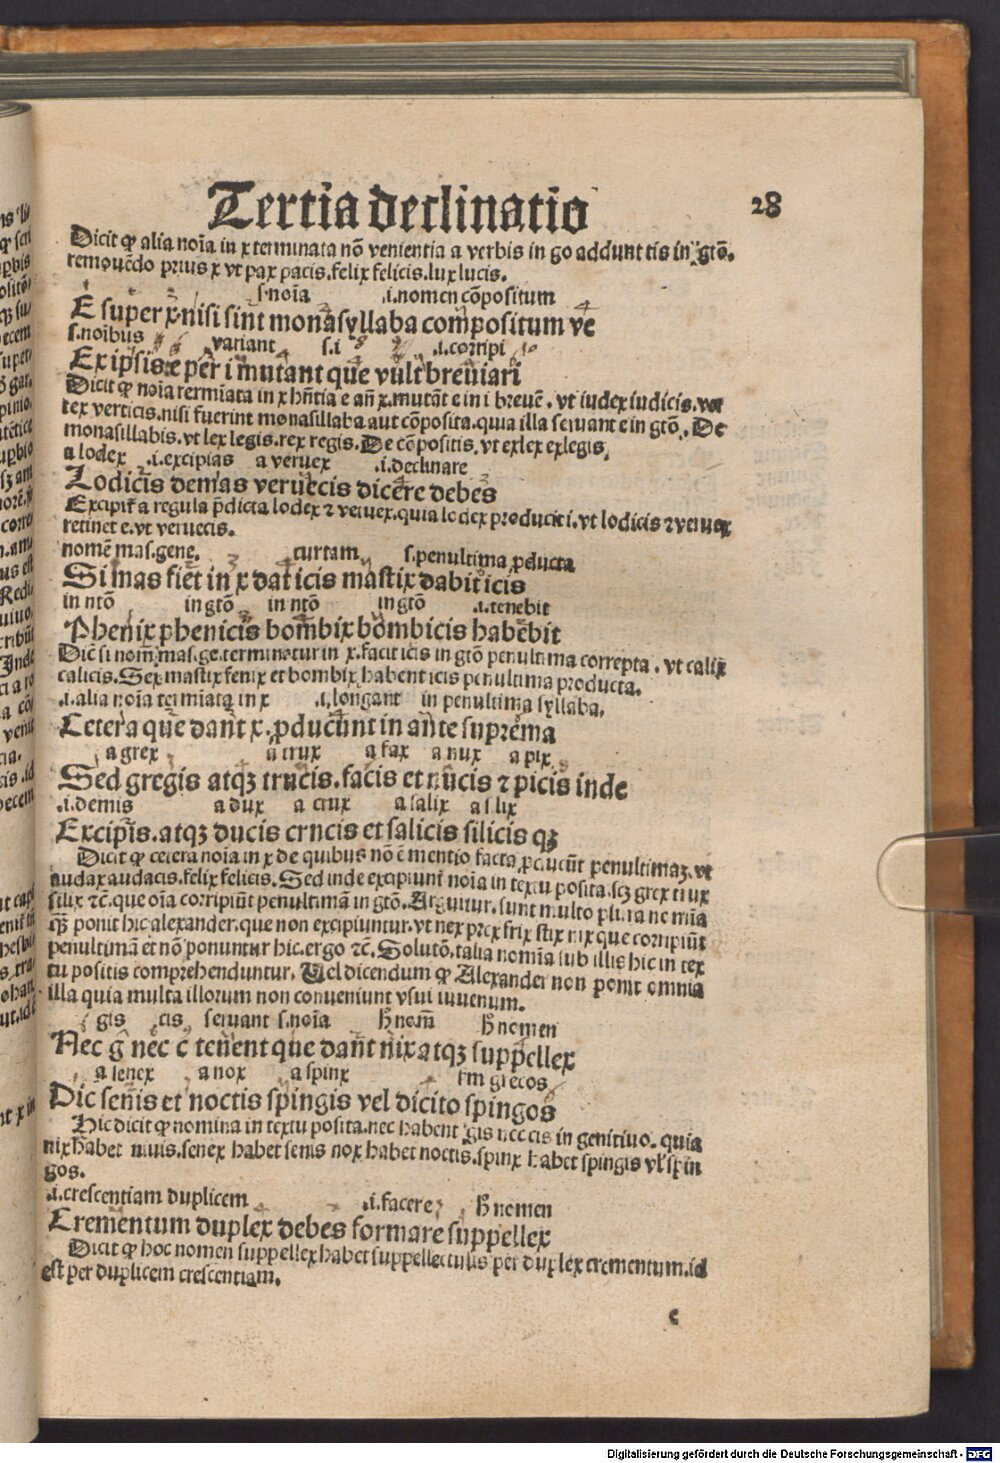 Tertia declinatio 28
Dicit ꝙ alia noīa in x terminata nō venientia a verbis in go addunt tis in gtō.
remouēdo prius x vt pax pacis.felix felicis.lux lucis.
s.noīa .i.nomen cōpositum
E super x nisi sint monasyllaba compositum ve
s.noībus variant s.i .i.corripi
Ex ipsis e per i mutant que vult breuiari
Dicit ꝙ noīa termīata in x hn̄tia e an̄ x.mutāt e in i breuē. vt iudex iudicis.ver
tex verticis.nisi fuerint monasillaba aut cōposita.quia illa seruant e in gtō. De
monasillabis.vt lex legis.rex regis. De cōpositis.vt exlex exlegis.
a lodex .i.excipias a veruex .i.declinare
Lodicis demas veruecis dicere debes
Excipit̄ a regula p̄dicta lodex ⁊ veruex.quia lodex producit i.vt lodicis ⁊ veruex
retinet e.vt veruecis.
nomē mas.gene. curtam s.penultima ꝓducta
Si mas fiet in x dat icis mastix dabit icis
in ntō in gtō in ntō in gtō .i.tenebit
Phenix phenicis bombix bombicis habebit
Dic̄ si nom̄ mas.ge.terminetur in x.facit icis in gtō penultima correpta. vt calix
calicis.Sex mastix fenix et bombix habent icis penultima producta.
.i.alia noīa termīata in x .i.longant in penultima syllaba.
Cetera que dant x.ꝓducunt in ante suprema
a grex a trux a fax a nux a pix
Sed gregis atqꝫ trucis.facis et nucis ⁊ picis inde
.i.demis a dux a crux a salix a silix
Excipis.atqꝫ ducis crncis et salicis silicis qꝫ
Dicit ꝙ cetera noīa in x de quibus nō ē mentio facta ꝓducūt penultimaꝫ.vt
audax audacis.felix felicis.Sed inde excipiunt̄ noīa in textu posita.scꝫ grex trux
silix ⁊c̄.que oīa corripiūt penultimā in gtō. Arguitur.sunt multo plura nomīa
qꝫ ponit hic alexander.que non excipiuntur.vt nex prex frix stix nix que corripiūt
penultimā et nō ponuntur hic.ergo ⁊c̄.Solutō.talia nomīa sub illis hic in tex
tu positis comprehenduntur. Uel dicendum ꝙ Alexander non ponit omnia
illa quia multa illorum non conueniunt vsui iuuenum.
gis cis seruant s.noīa h̄ nom̄ h̄ nomen
Nec g nec c tenent que dant nix atqꝫ suppellex
a senex a nox a spinx fm grecos
Dic senis et noctis spingis vel dicito spingos
Hic dicit ꝙ nomina in textu posita.nec habent gis nec cis in genitiuo. quia
nix habet niuis.senex habet senis nox habet noctis.spinx habet spingis vl̓ spin
gos.
.i.crescentiam duplicem .i.facere h̄ nomen
Crementum duplex debes formare suppellex
Dicit ꝙ hoc nomen suppellex habet suppellectulis per duplex crementum.id
est per duplicem crescentiam.
c
Digitalisierung gefördert durch die Deutsche Forschungsgemeinschaft - DFG